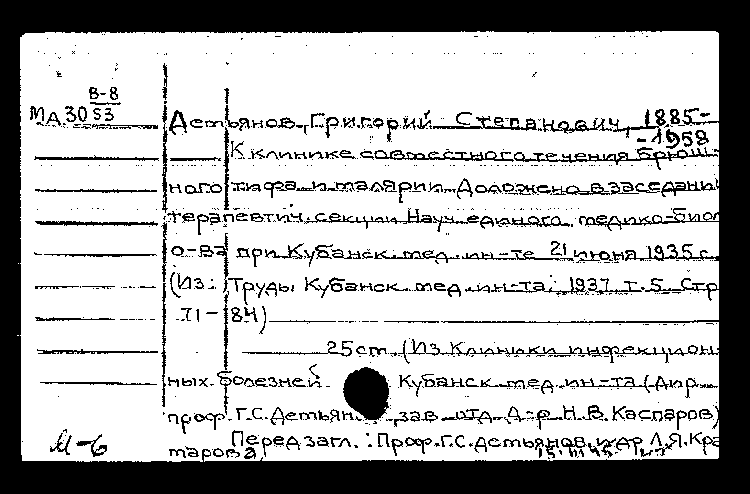 В-8
МА 30 53
Детьянов, Григорий Степанович, 1885-
-1958
К клинике совместного течения брюш-
ного тифа и малярии. Доложено в заседани
терапевтич. секции Науч. единого медико-биол
о-ва при Кубанск. мед. ин-те 21 июня 1935 г.
(Из: Труды Кубанск. мед. ин-та. 1937. т. 5. Стр
71-84)
25 ст. (Из Клиники инфекцион-
ных болезней Кубанск. мед. ин-та (Дир.
проф. Г.С. Детьян зав. отд. Д-р Н.В. Каспаров)
Перед загл.: Проф. Г.С. Детьянов и др Л.Я. Кра
марова
М-6